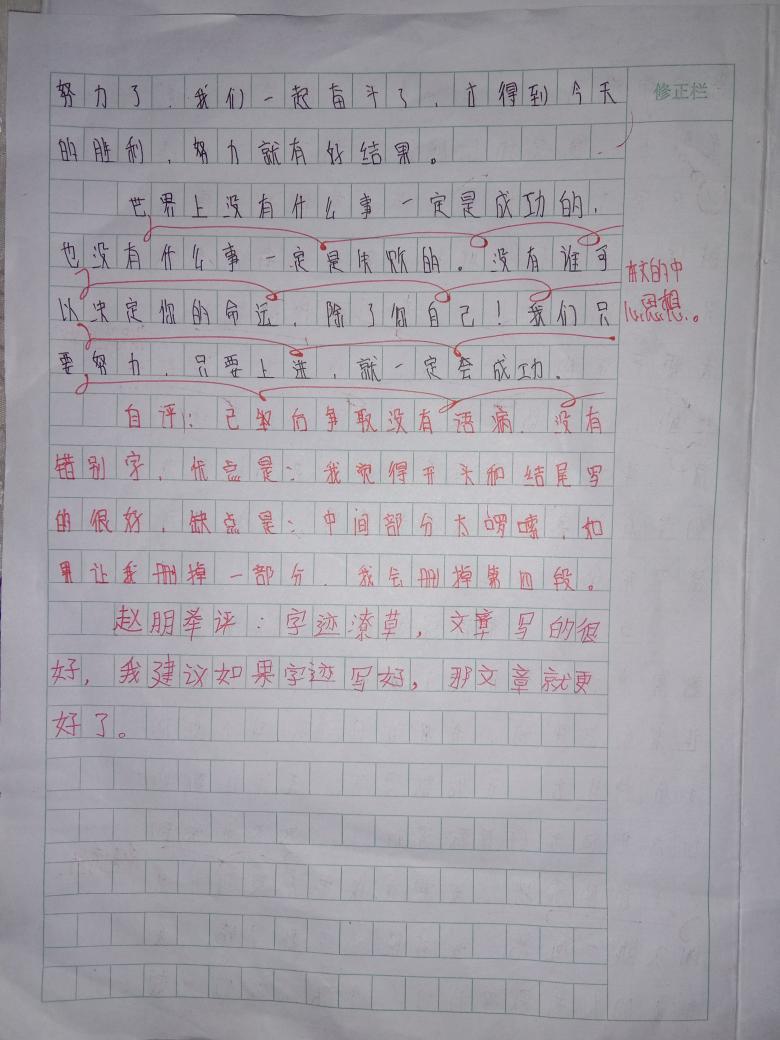 修正栏
努力了，我们一起奋斗了，才得到今天
的胜利，努力就有好结果。
世界上没有什么事一定是成功的，
也没有什么事一定是失败的。没有谁可
以决定你的命运，除了你自己！我们只
要努力，只要上进，就一定会成功。
本文的中
心思想。
自评：已经向争取没有语病，没有
错别字，优点是：我觉得开头和结尾写
的很好，缺点是：中间部分太啰嗦，如
果让我删掉一部分，我会删掉第四段。
赵朋举评：字迹潦草，文章写的很
好，我建议如果字迹写好，那文章就更
好了。